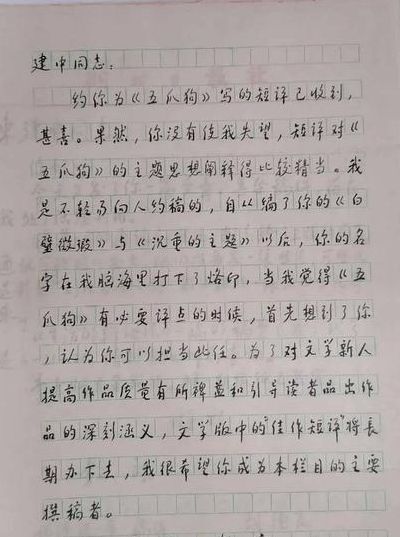 建中同志：
约你为《五爪狗》写的短评已收到，
甚喜。果然，你没有使我失望，短评对《
五爪狗》的主题思想阐释得比较精当。我
是不轻易向人约稿的，自从编了你的《白
璧微瑕》与《沉重的主题》以后，你的名
字在我脑海里打下了烙印，当我觉得《五
爪狗》有必要评点的时候，首先想到了你
，认为你可以担当此任。为了对文学新人
提高作品质量有所裨益和引导读者品出作
品的深刻涵义，文学版中的"佳作短评"将长
期办下去，我很希望你成为本栏目的主要
撰稿者。